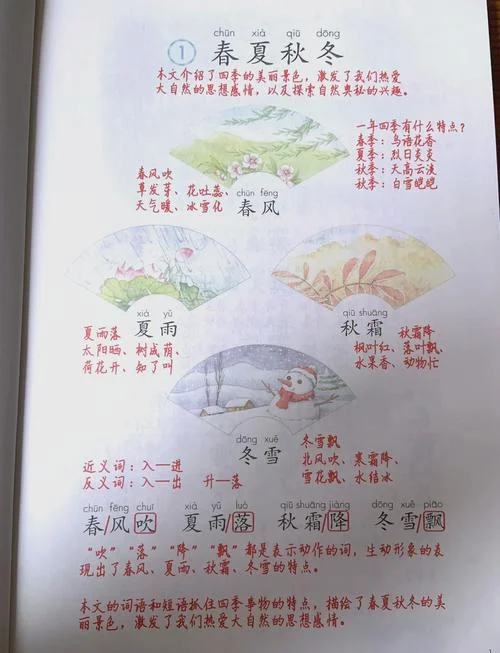 chūn xià qiū dōng
1 春夏秋冬
本文介绍了四季的美丽景色，激发了我们热爱
大自然的思想感情，以及探索自然奥秘的兴趣。
一年四季有什么特点？
春季：鸟语花香
夏季：烈日炎炎
秋季：天高云淡
秋季：白雪皑皑
春风吹
草发芽、花吐蕊、
天气暖、冰雪化
chūn fēng
春风
xià yǔ
夏雨
夏雨落
太阳晒、树成荫、
荷花开、知了叫
qiū shuāng
秋霜
秋霜降
枫叶红、落叶飘、
水果香、动物忙
dōng xuě
冬雪
冬雪飘
北风吹、寒霜降、
雪花飘、水结冰
近义词：入—进
反义词：入—出 升—落
chūn fēng chuī xià yǔ luò qiū shuāng jiàng dōng xuě piāo
春/风吹 夏雨/落 秋霜/降 冬雪/飘
“吹”“落”“降”“飘”都是表示动作的词，生动形象的表
现出了春风、夏雨、秋霜、冬雪的特点。
本文的词语和短语抓住四季事物的特点，描绘了春夏秋冬的美
丽景色，激发了我们热爱大自然的思想感情。